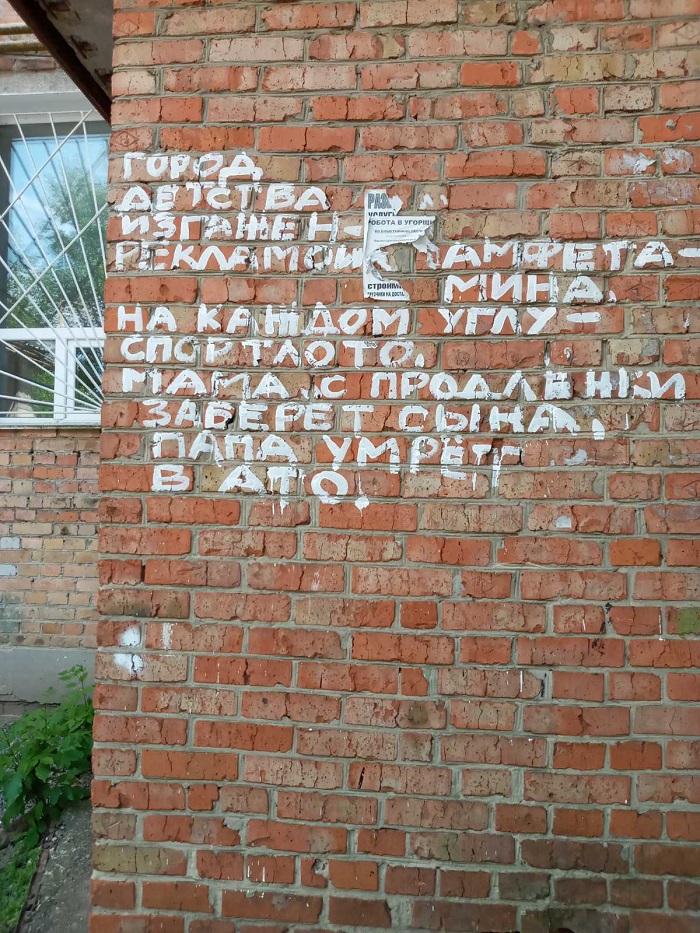 ГОРОД
ДЕТСТВА
ИЗГАЖЕН-
РЕКЛАМОЙ АМФЕТА-
МИНА.
НА КАЖДОМ УГЛУ-
СПОРТЛОТО.
МАМА С ПРОДЛЁНКИ
ЗАБЕРЕТ СЫНА,
ПАПА УМРЁТ
В АТО.
РОБОТА В УГОРЩИ